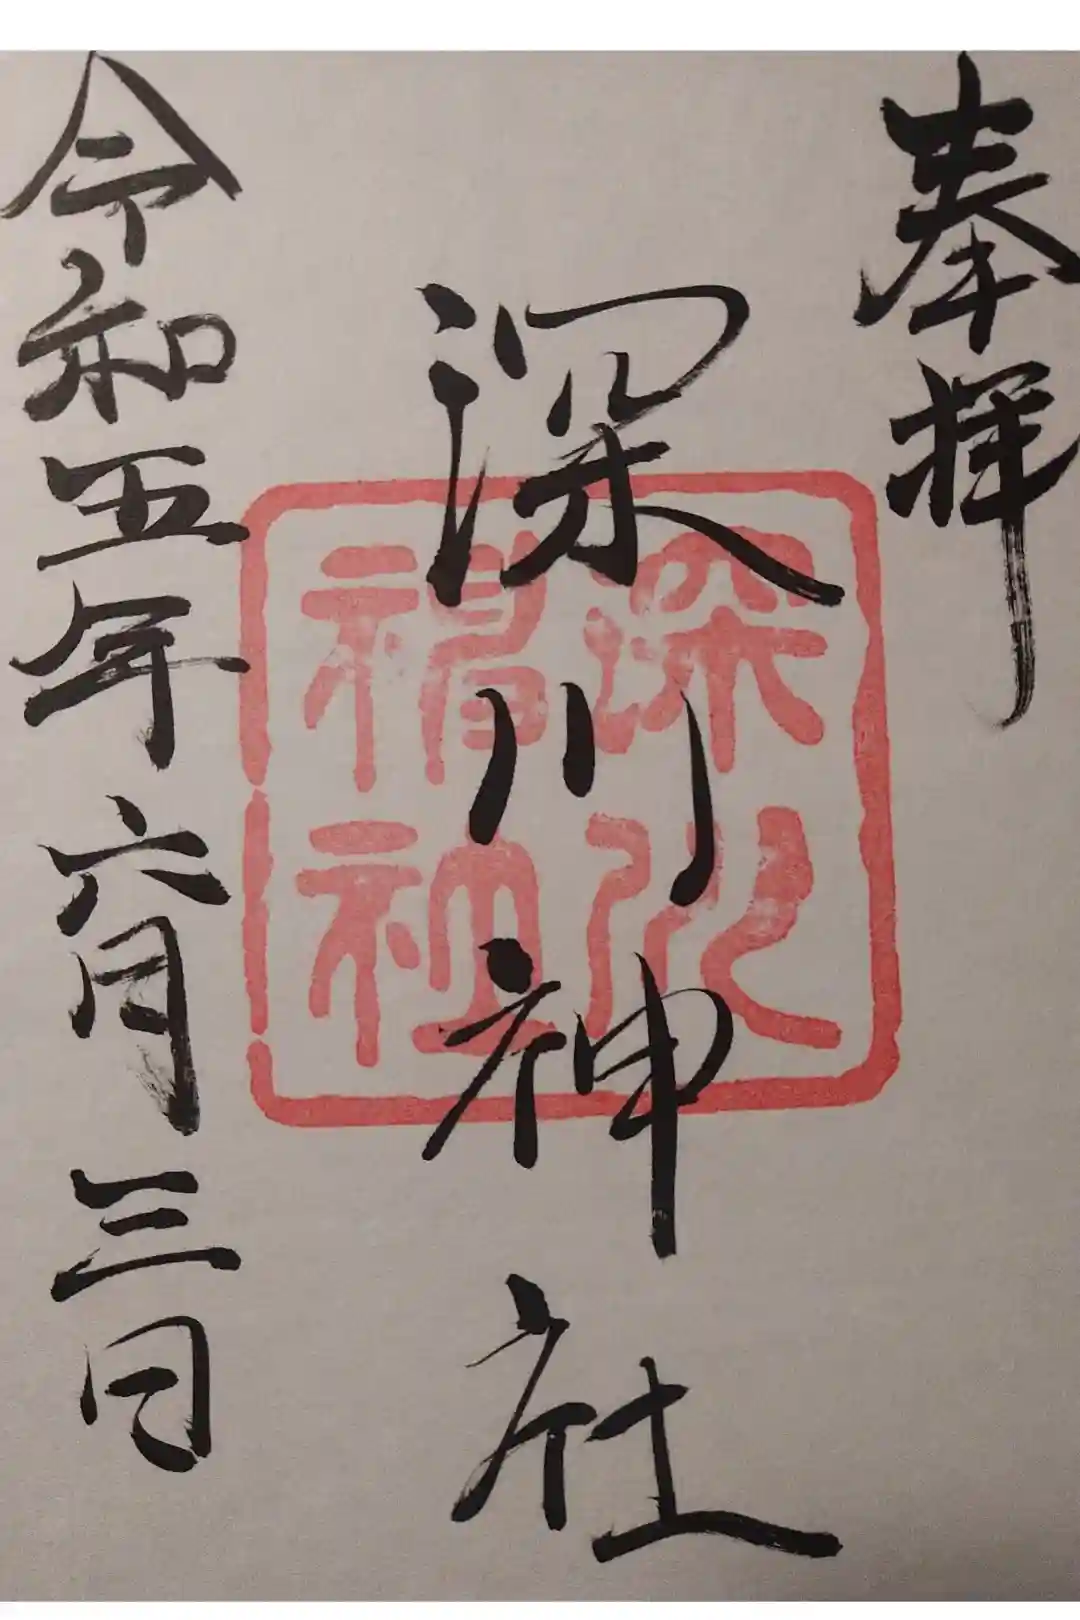 奉拝
深川神社
深川
神社
令和五年六月三日